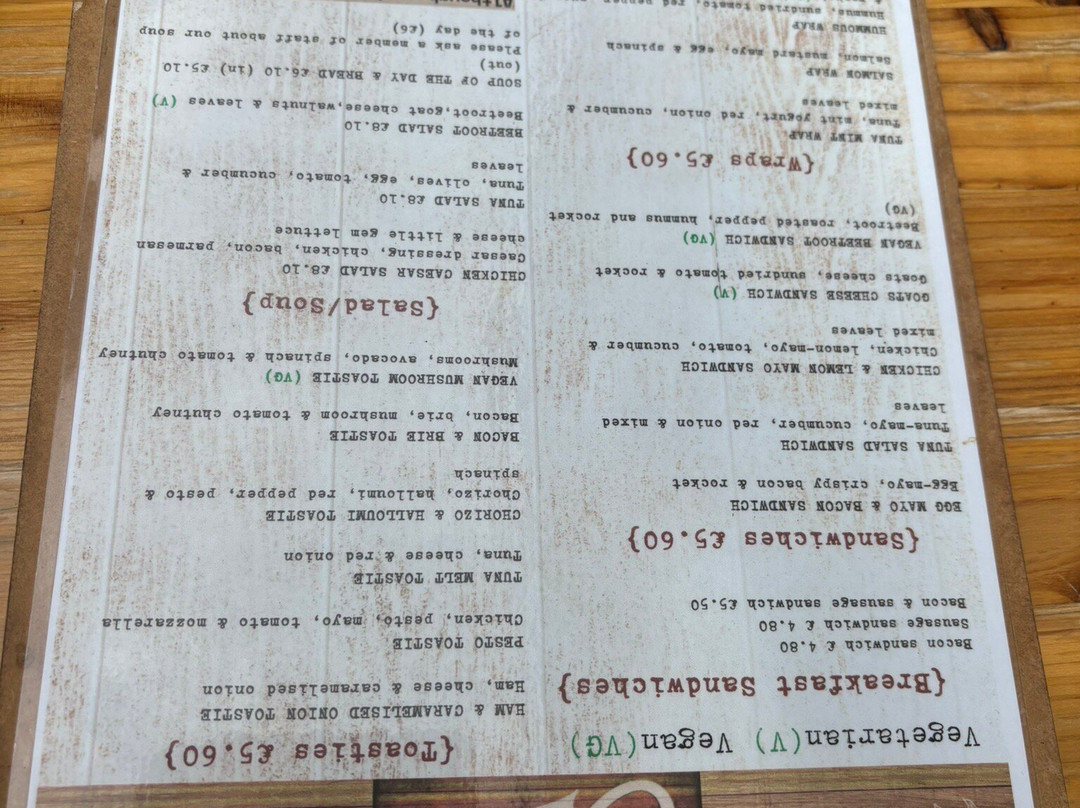 Vegetarian(V) Vegan(VG)
{Breakfast Sandwiches}
Bacon sandwich £ 4.80
Sausage sandwich £ 4.80
Bacon & sausage sandwich £5.50
{Sandwiches £5.60}
EGG MAYO & BACON SANDWICH
Egg-mayo, crispy bacon & rocket
TUNA SALAD SANDWICH
Tuna-mayo, cucumber, red onion & mixed
leaves
CHICKEN & LEMON MAYO SANDWICH
Chicken, lemon-mayo, tomato, cucumber &
mixed leaves
GOATS CHEESE SANDWICH (V)
Goats cheese, sundried tomato & rocket
VEGAN BEETROOT SANDWICH (VG)
Beetroot, roasted pepper, hummus and rocket
(VG)
{Wraps £5.60}
TUNA MINT WRAP
Tuna, mint yogurt, red onion, cucumber &
mixed leaves
SALMON WRAP
Salmon, mustard mayo, egg & spinach
HUMMOUS WRAP
Hummus, sundried tomato, red pepper
{Toasties £5.60}
HAM & CARAMELISED ONION TOASTIE
Ham, cheese & caramelised onion
PESTO TOASTIE
Chicken, pesto, mayo, tomato & mozzarella
TUNA MELT TOASTIE
Tuna, cheese & red onion
CHORIZO & HALLOUMI TOASTIE
Chorizo, halloumi, red pepper, pesto &
spinach
BACON & BRIE TOASTIE
Bacon, brie, mushroom & tomato chutney
VEGAN MUSHROOM TOASTIE (VG)
Mushrooms, avocado, spinach & tomato chutney
{Salad/Soup}
CHICKEN CAESAR SALAD £8.10
Caesar dressing, chicken, bacon, parmesan
cheese & little gem lettuce
TUNA SALAD £8.10
Tuna, olives, egg, tomato, cucumber &
leaves
BEETROOT SALAD £8.10
Beetroot, goat cheese, walnuts & leaves (V)
SOUP OF THE DAY & BREAD £6.10 (in) £5.10
(out)
Please ask a member of staff about our soup
of the day (£6)
Although